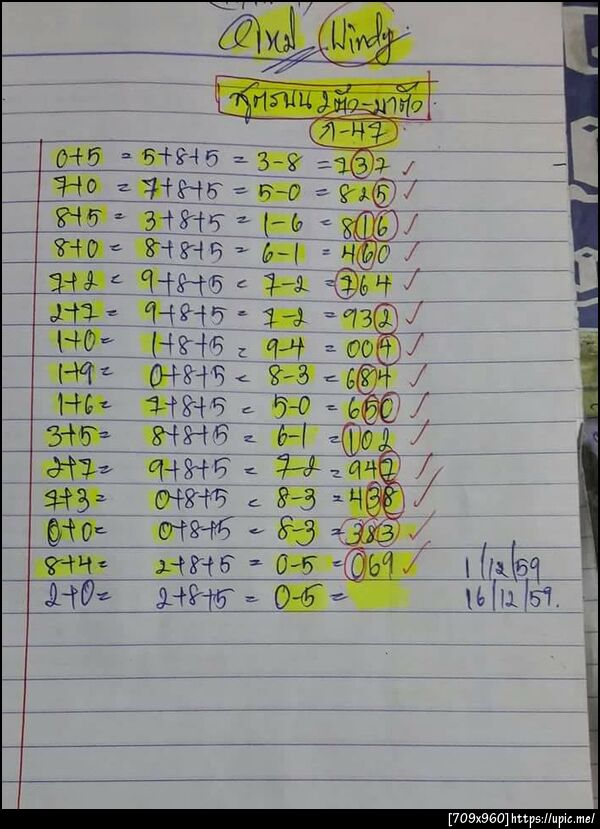 Windy
สูตรบน 2 ตัว-มาตัว
ภ-47
0+5 = 5+8+5 = 3-8 = 737 ✓
7+0 = 7+8+5 = 5-0 = 825 ✓
8+5 = 3+8+5 = 1-6 = 816 ✓
8+0 = 8+8+5 = 6-1 = 460 ✓
7+2 = 9+8+5 = 7-2 = 764 ✓
2+7 = 9+8+5 = 7-2 = 932 ✓
1+0 = 1+8+5 = 9-4 = 004 ✓
1+9 = 0+8+5 = 8-3 = 684 ✓
1+6 = 7+8+5 = 5-0 = 650 ✓
3+5 = 8+8+5 = 6-1 = 102 ✓
2+7 = 9+8+5 = 7-2 = 947 ✓
7+3 = 0+8+5 = 8-3 = 438 ✓
0+0 = 0+8+5 = 8-3 = 383 ✓
8+4 = 2+8+5 = 0-5 = 069 ✓ 1/12/59
2+0 = 2+8+5 = 0-5 = 16/12/59.
[709x960]https://upic.me/